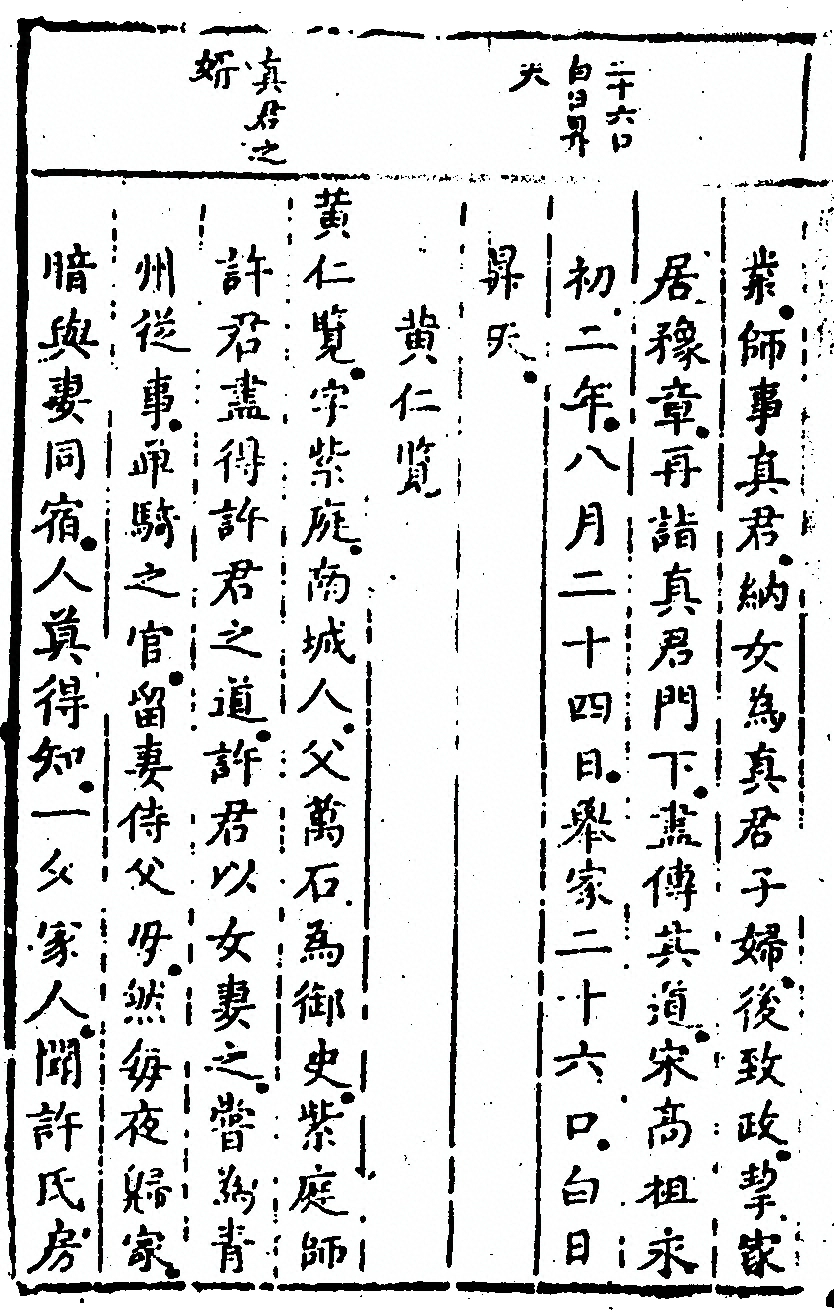 二十六口
白日昇
天
真君之
婿
業。師事真君。納女為真君子婦。後致政。挈家
居豫章。再詣真君門下。盡傳其道。宋高祖永
初二年。八月二十四日。舉家二十六口。白日
昇天。
黃仁覽
黃仁覽。字紫庭。南城人。父萬石為御史。紫庭師
許君盡得許君之道。許君以女妻之。嘗為青
州從事。单騎之官。留妻侍父母。然每夜歸家。
暗與妻同宿。人莫得知。一夕家人。聞許氏房